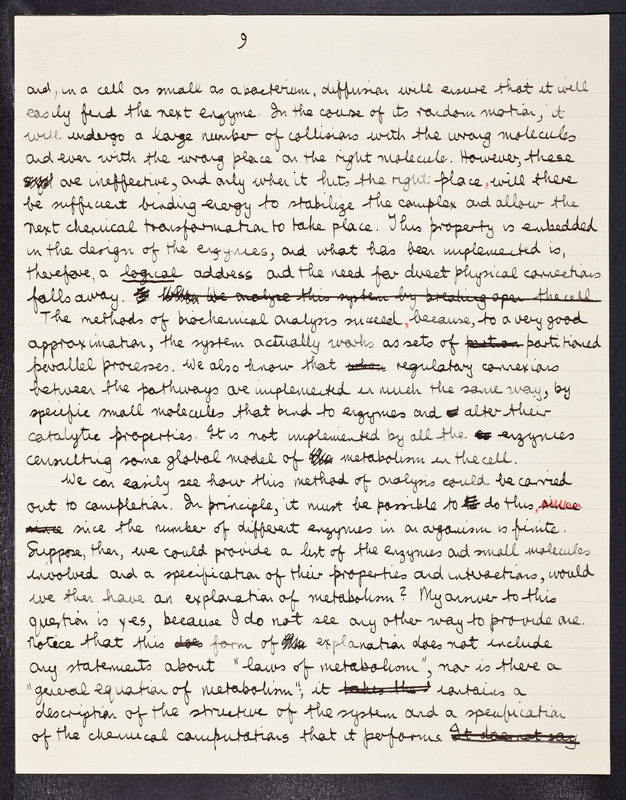 9
and, in a cell as small as a bacterium, diffusion will ensure that it will
easily find the next enzyme. In the couse of its random motion, it
will undergo a large number of collisions with the wrong molecules
and even with the wrong place on the right molecule. However, these
are ineffective, and only when it hits the right place, will there
be sufficient binding energy to stabilize the complex and allow the
next chemical transformation to take place. This property is embedded
in the design of the enzymes, and what has been implemented is,
therefore, a logical address and the need for direct physical connections
falls away. When we analyse this system by breaking open the cell
The methods of biochemical analysis succeed, because, to a very good
approximation, the system actually works as sets of partitioned
parallel processes. We also know that regulatory connexions
between the pathways are implemented in much the same way, by
specific small molecules that bind to enzymes and alter their
catalytic properties. It is not implemented by all the enzymes
consulting some global model of the metabolism in the cell.
We can easily see how this method of analysis could be carried
out to completion. In principle, it must be possible to do this, since
since the number of different enzymes in an organism is finite.
Suppose, then, we could provide a list of the enzymes and small molecules
involved and a specification of their properties and interactions, would
we then have an explanation of metabolism? My answer to this
question is yes, because I do not see any other way to provide one.
Notice that this does form of explanation does not include
any statements about "laws of metabolism", nor is there a
"general equation of metabolism"; it takes the contains a
description of the structure of the system and a specification
of the chemical computations that it performs. It does not say